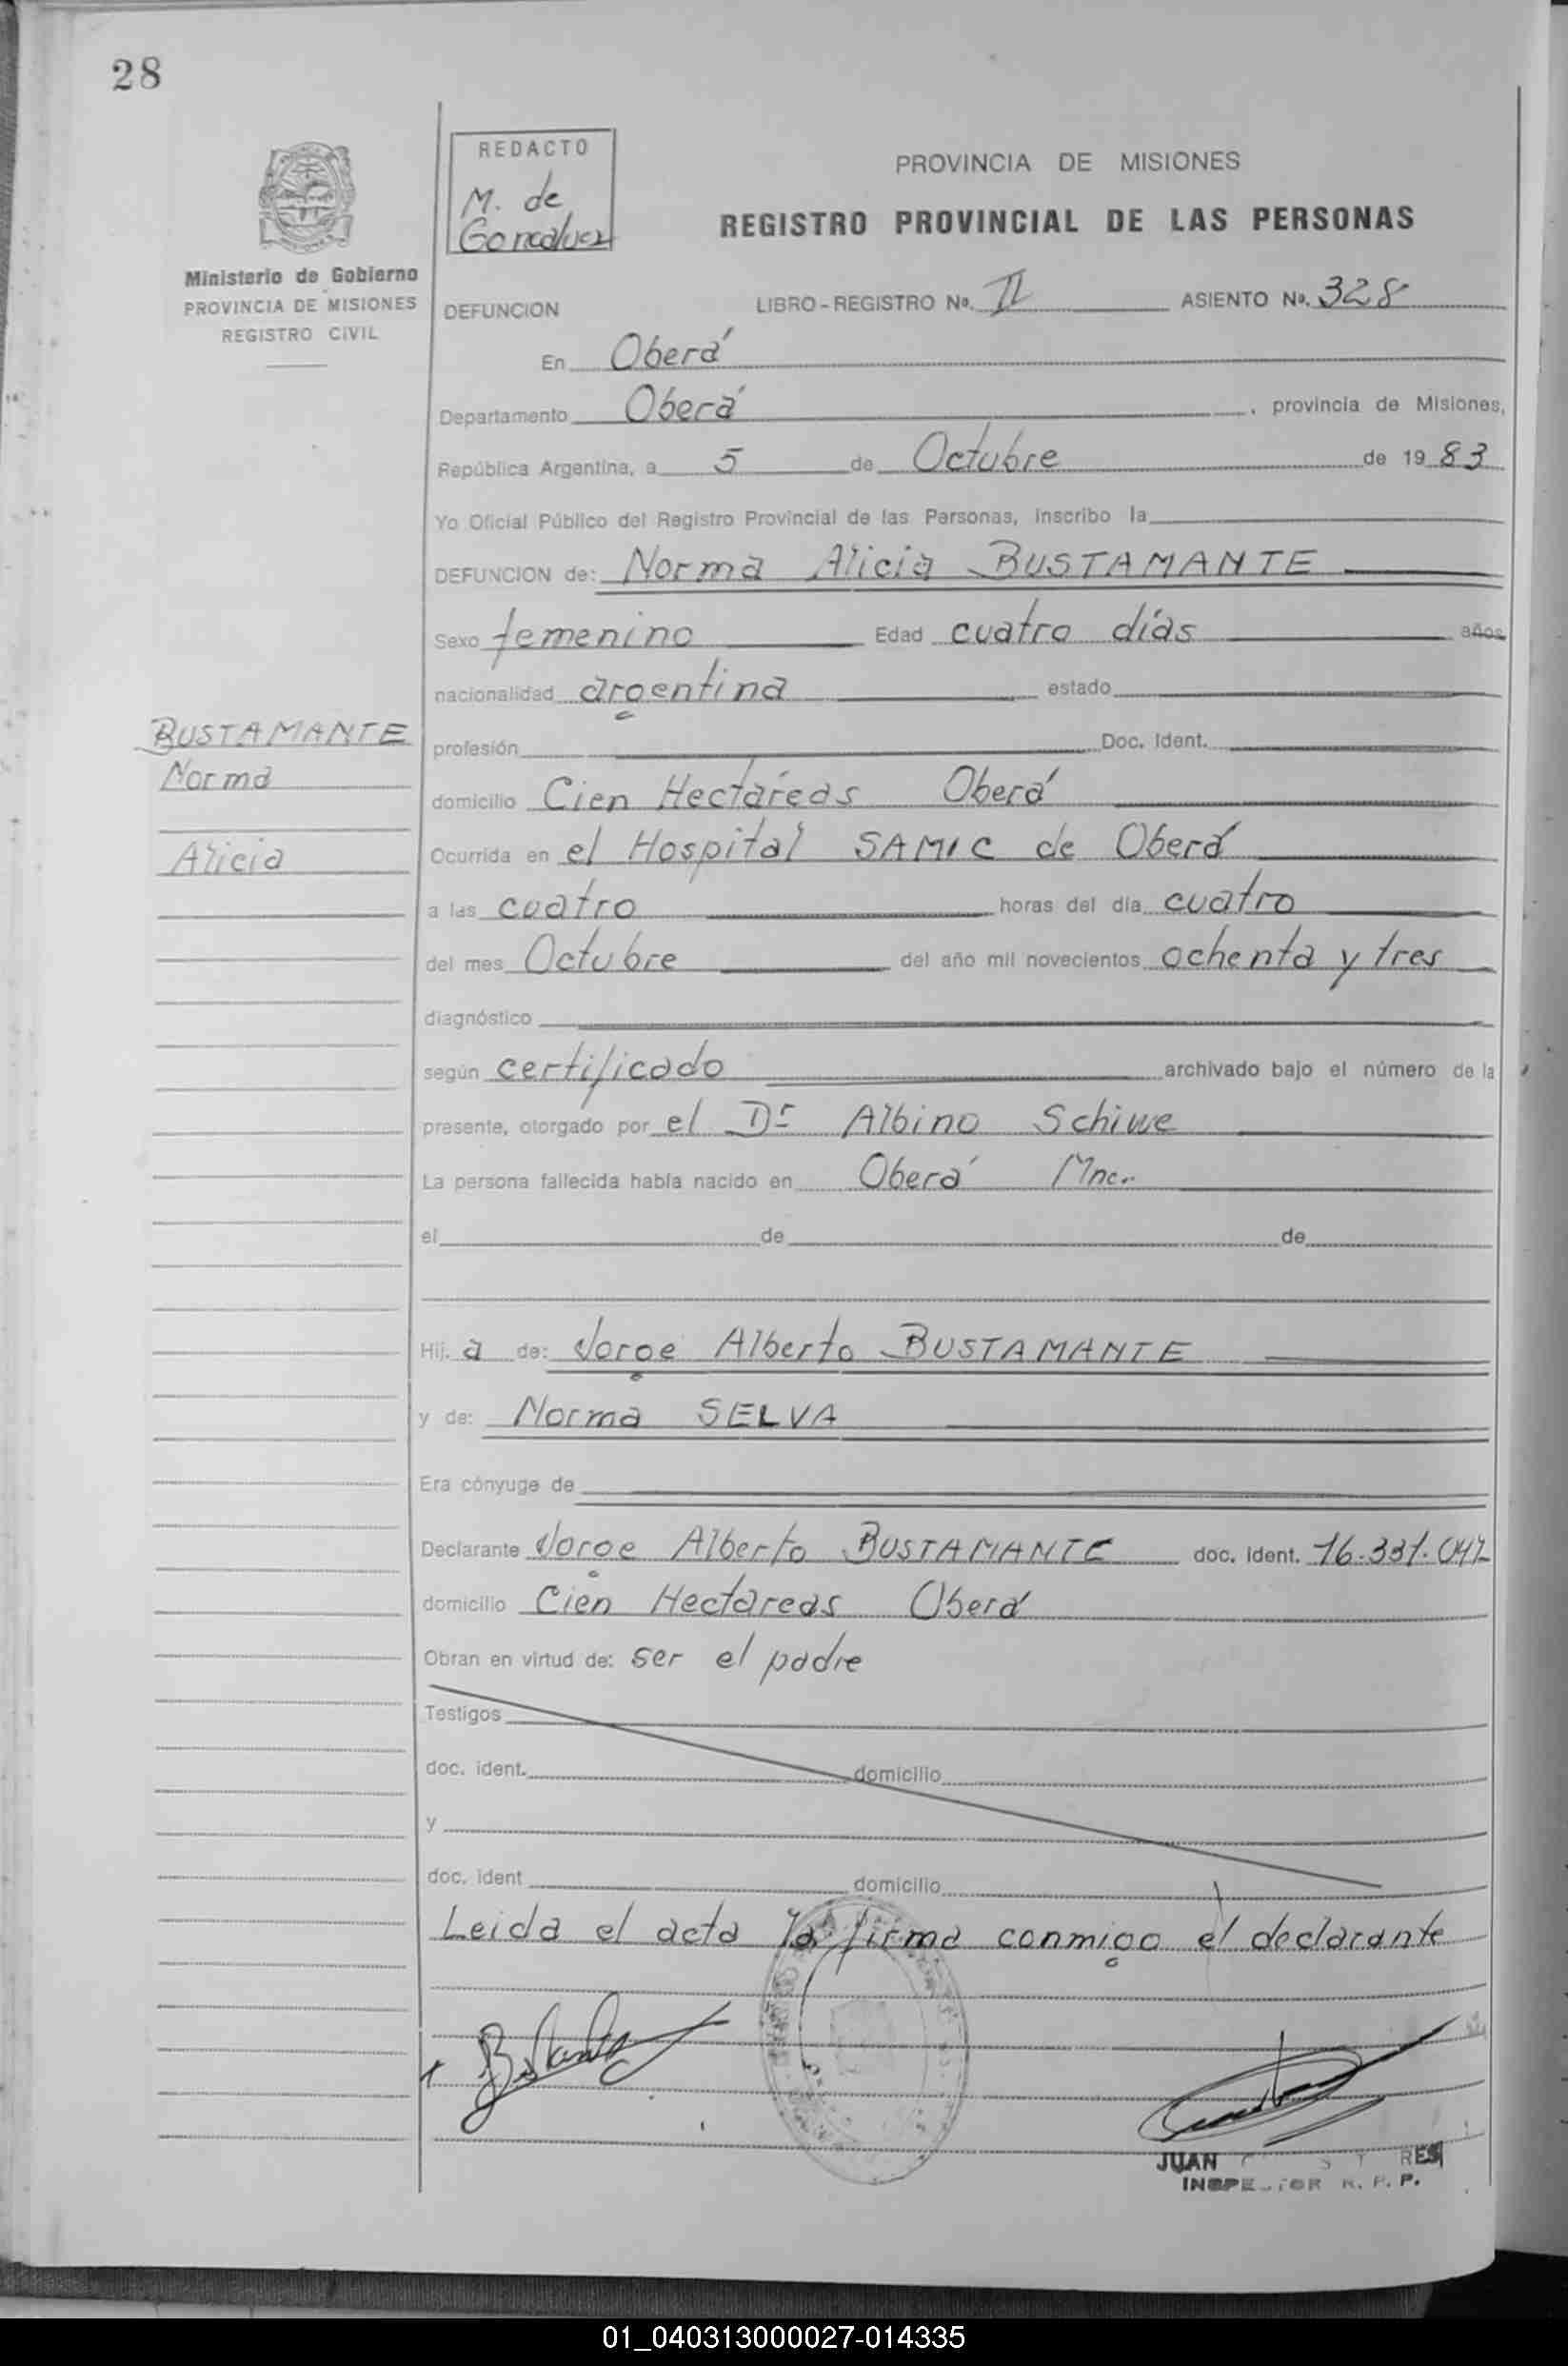 28
REDACTO
M. de
Goncalvez
Ministerio de Gobierno
PROVINCIA DE MISIONES
REGISTRO CIVIL
PROVINCIA DE MISIONES
REGISTRO PROVINCIAL DE LAS PERSONAS
DEFUNCION LIBRO-REGISTRO No. II ASIENTO No. 328
En Oberá
Departamento Oberá , provincia de Misiones,
República Argentina, a 5 de Octubre de 1983
Yo Oficial Público del Registro Provincial de las Personas, inscribo la
DEFUNCION de: Norma Alicia BUSTAMANTE
Sexo femenino Edad cuatro días años
nacionalidad argentina estado
BUSTAMANTE
Norma
Alicia
profesión Doc. Ident.
domicilio Cien Hectáreas Oberá
Ocurrida en el Hospital SAMIC de Oberá
a las cuatro horas del día cuatro
del mes Octubre del año mil novecientos ochenta y tres
diagnóstico
según certificado archivado bajo el número de la
presente, otorgado por el Dr Albino Schiwe
La persona fallecida había nacido en Oberá Mnes.
el de de
Hij. a de: Jorge Alberto BUSTAMANTE
y de: Norma SELVA
Era cónyuge de
Declarante Jorge Alberto BUSTAMANTE doc. ident. 16.331.042
domicilio Cien Hectareas Oberá
Obran en virtud de: ser el padre
Testigos
doc. ident. domicilio
y
doc. ident domicilio
Leida el acta la firma conmigo el declarante
JUAN
INSPECTOR R. P. P.
01_040313000027-014335